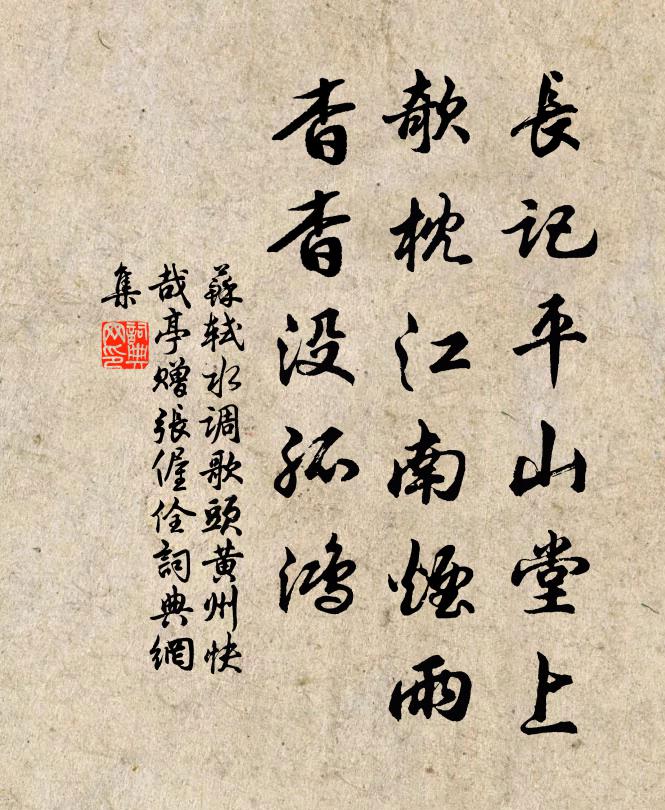 長記平山堂上
欹枕江南煙雨
杳杳没孤鴻
蘇軾水調歌頭黄州快
哉亭贈張偓佺詞典網
集
詞典
网印